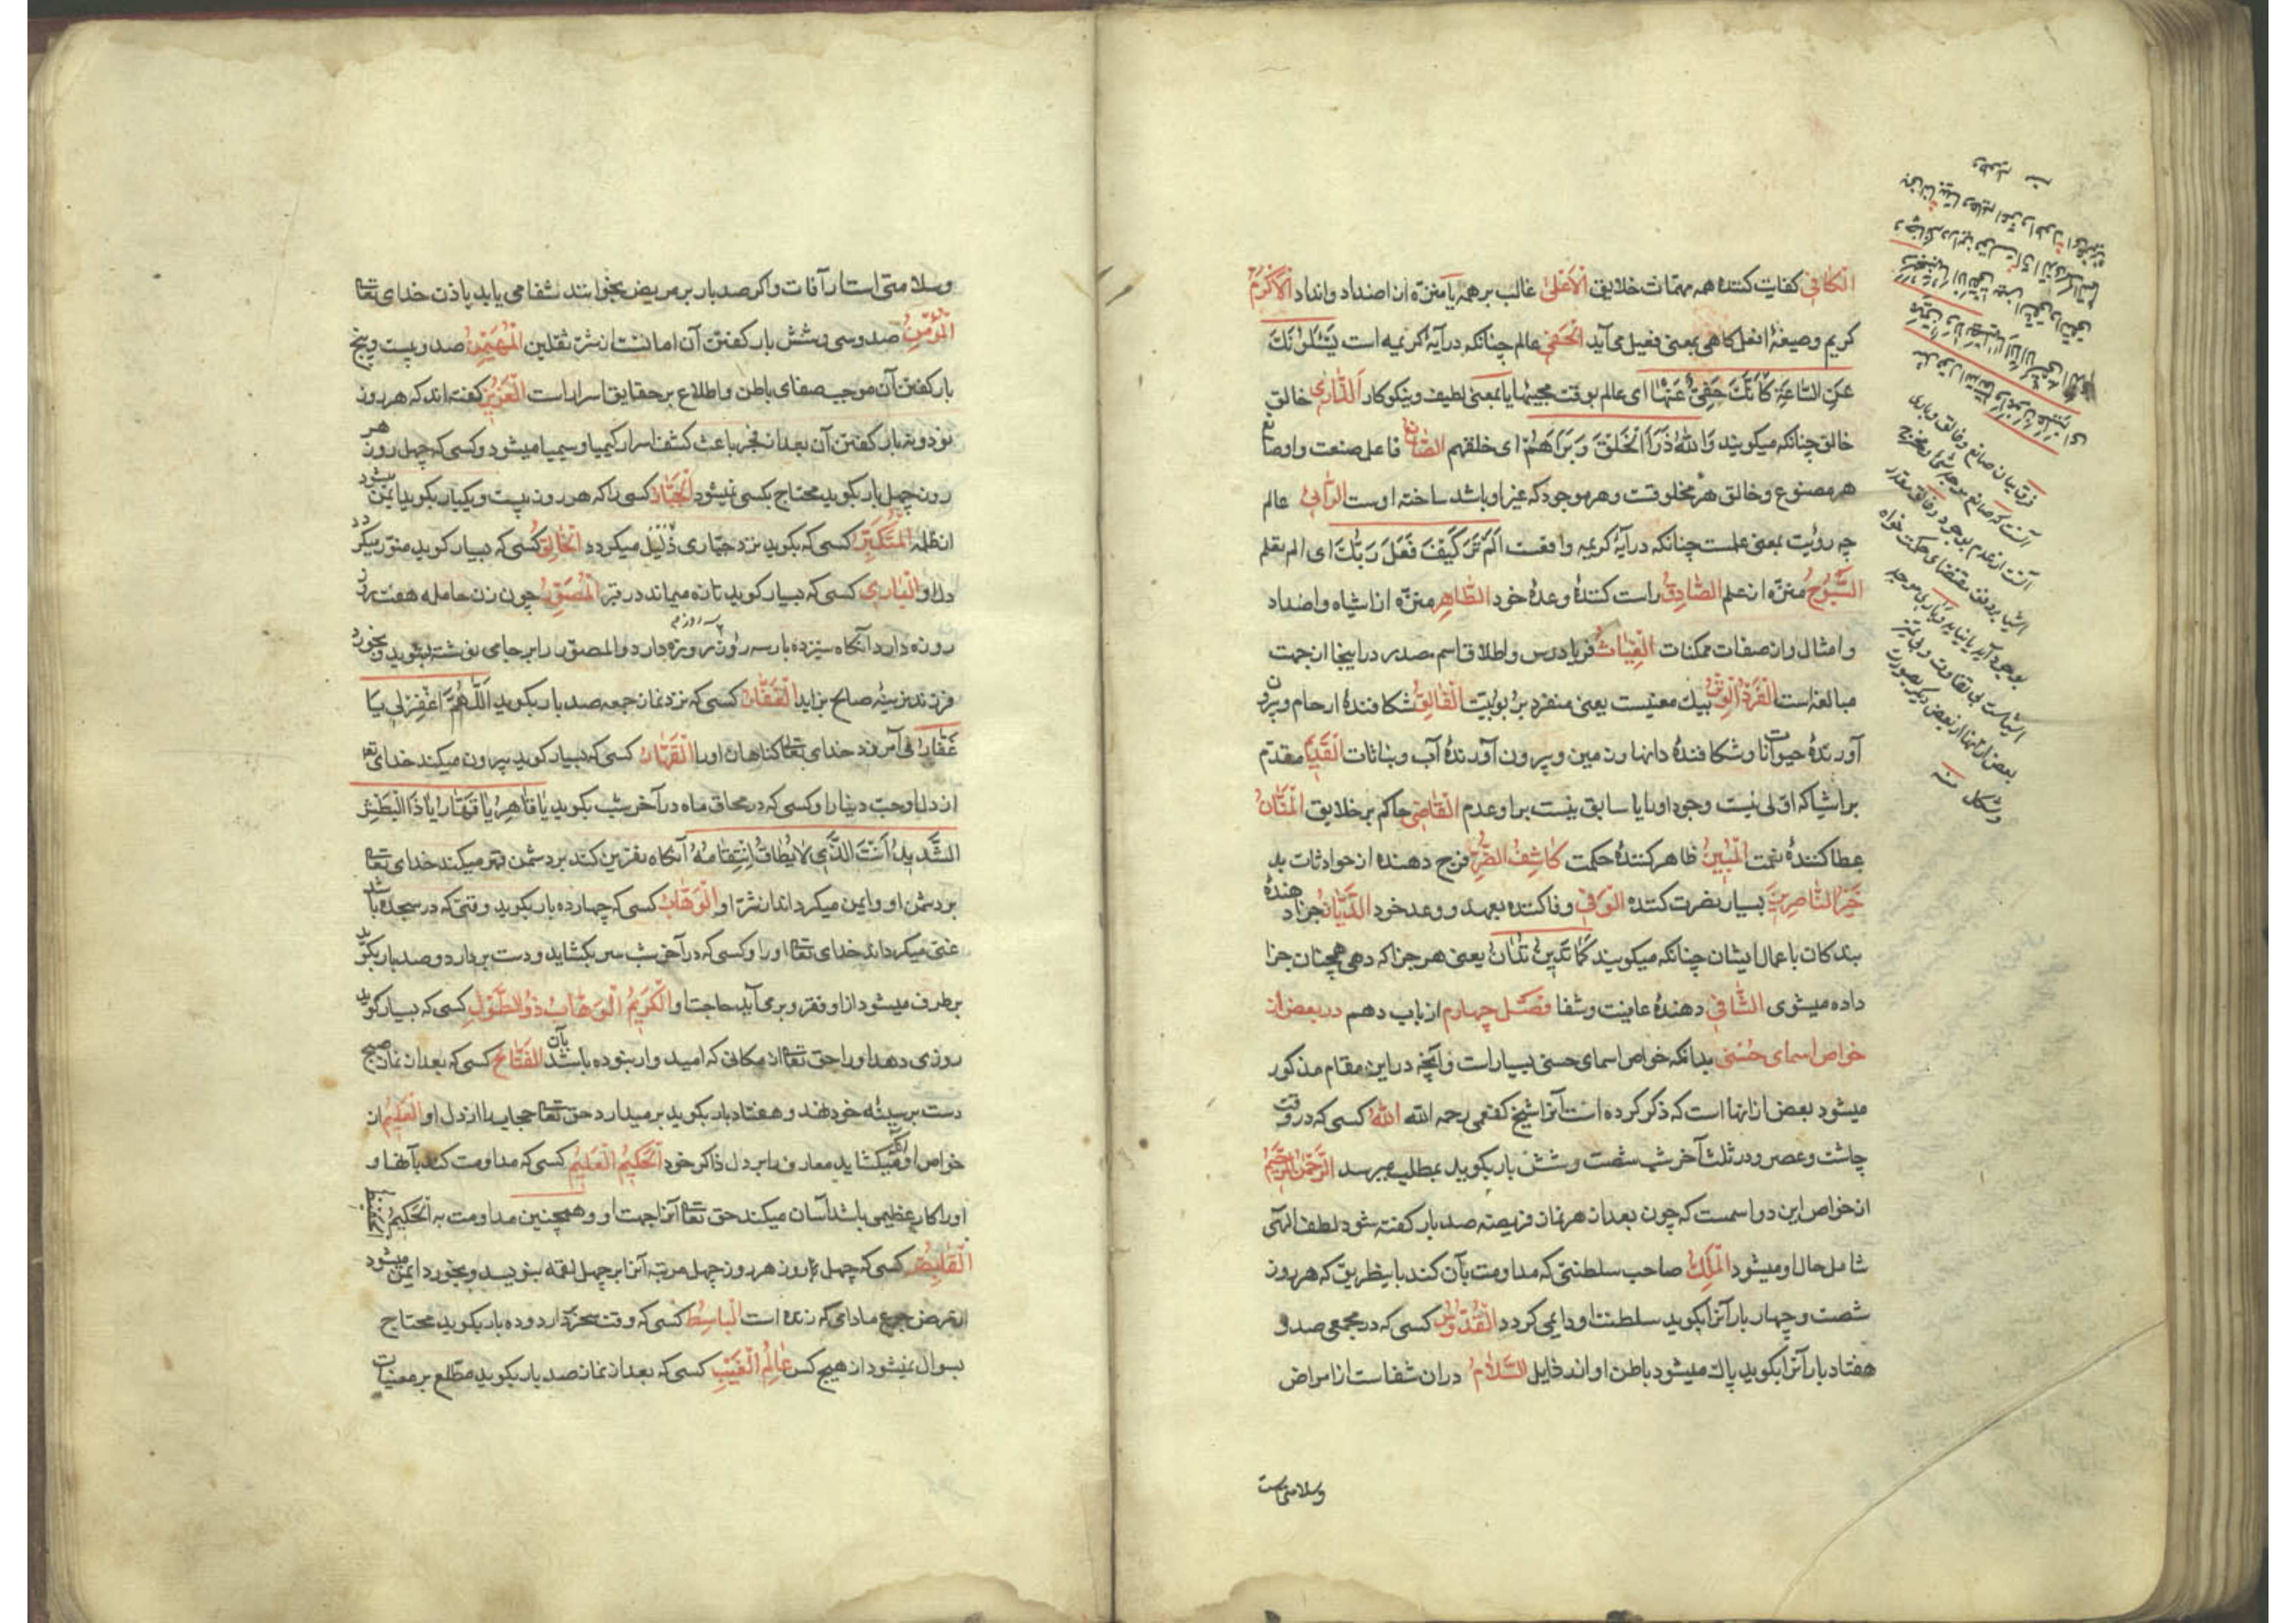 الْکافی کفایت کنندهٔ همه مهمات خلایق الاَعْلیٰ غالب بر همه یا منزّه از اضداد و انداد الاَکْرَمُ
کریم وصیغهٔ افعل کاهی بمعنی فعیل می آید الْحَفِیّ عالم چنانکه در آیهٔ کریمه است یَسْئَلُونَكَ
عَنِ السّٰاعَةِ کَاَنَّكَ حَفِیٌّ عَنْهٰا ای عالم بوقت مجیئها یا بمعنی لطیف ونیکوکار اَلذّٰارِی خالق
خالق چنانکه میکویند وَاللهُ ذَرَاَ الْخَلْقَ وَ بَرَاَهُمْ ای خلقهم الصّٰانِعُ فاعل صنعت واو صانع
هر مصنوع و خالق هر مخلوقست و هر موجود که غیر او باشد ساخته اوست الرّٰائی عالم
چه رؤیت بمعنی علمست چنانکه در آیهٔ کریمه واقعست اَلَمْ تَرَ کَیْفَ فَعَلَ رَبُّكَ ای الم تعلم
السُّبُّوحُ منزّه از علم الصّٰادِقُ راست کنندهٔ وعدهٔ خود الطّٰاهِر منزّه از اشباه و اضداد
و امثال و از صفات ممکنات الغِیٰاثُ فریادرس واطلاق اسم مصدر در اینجا از جهت
مبالغه است الفَرْدُ الْوِتْرُ بیك معنیست یعنی منفرد بربوبیت الفٰالِقُ شکافندهٔ ارحام وبیرون
آورندهٔ حیوانات و شکافندهٔ دانها و زمین و بیرون آورندهٔ آب و نباتات القَدیمُ مقدّم
بر اشیا که اوّلی نیست وجود او را یا سابق نیست بر او عدم القٰاضی حاکم بر خلایق المَنّٰانُ
عطا کنندهٔ نعمت المُبینُ ظاهر کنندهٔ حکمت کٰاشِفُ الضُّرِّ فرج دهنده از حوادثات بد
خَیْرُ النّٰاصِرینَ بسیار نصرت کننده الوَفِیّ وفا کننده بعهد و وعد خود الدَّیّٰانُ جزا دهندهٔ
بندکان باعمال ایشان چنانکه میکویند کَمٰا تَدینُ تُدٰانُ یعنی هر جزا که دهی همچنان جزا
داده میشوی الشّٰافی دهندهٔ عافیت و شفا فصل چهارم از باب دهم در بعض از
خواص اسمای حُسْنی بدانکه خواص اسمای حسنی بسیار است و آنچه در این مقام مذکور
میشود بعض از انها است که ذکر کرده است آنرا شیخ کفعمی رحمه الله اللهُ کسی که در وقت
چاشت وعصر و در ثلث آخر شب شصت و شش بار بکوید بمطلب میرسد الرَّحْمٰنُ الرَّحیمُ
از خواص این دو اسمست که چون بعد از هر نماز فریضه صد بار کفته شود لطف الهی
شامل حال او میشود المَلِكُ صاحب سلطنتی که مداومت بآن کند باینطریق که هر روز
شصت و چهار بار آنرا بکوید سلطنت او دایمی کردد القُدُّوسُ کسی که در مجمعی صد و
هفتاد بار آنرا بکوید پاك میشود باطن او از رذایل السَّلٰامُ در ان شفاست از امراض
وسلامتی است
فرق میان صانع و خالق و باری
آنست که صانع موجد شیء و مخرج
آنست از عدم بوجود و خالق مقدر
اشیا بر وفق مقتضای حکمت خواه
بوجود آید یا نیاید و باری موجد
اشیاست بی تفاوت و بی تمیز
بعض از انها از بعض دیکر بصورت
و شکل منه
وسلامتی است از آفات و اکر صد بار بر مریض بخوانند شفا می یابد باذن خدای تعا
المُؤْمِنُ صد وسی و شش بار کفتن آن امانست از شر ثقلین المُهَیْمِنُ صد و بیست و پنج
بار کفتن آن موجب صفای باطن و اطلاع بر حقایق اسرار است الْعَزیزُ کفته اند که هر روز
نود و نه بار کفتن آن بعد از فجر باعث کشف اسرار کیمیا و سیمیا میشود و کسی که چهل روز هر
روز چهل بار بکوید محتاج بکسی نمیشود الْجَبّٰارُ کسی را که هر روز بیست و یکبار بکوید ایمن میشود
از ظلمه المُتَکَبِّرُ کسی که بکوید نزد جباری ذلیل میکردد الْخٰالِقُ کسی که بسیار کوید منوّر میکردد
دل او الْبٰاری کسی که بسیار کوید تازه میماند در قبر المُصَوِّرُ چون زن حامله هفت روز
روزه دارد آنکاه سیزده بار سه روز روزه دارد و المصوّر را بر جای نوشته بشوید و بخورد
فرزند نرینهٔ صالح بزاید الْغَفّٰارُ کسی که نزد نماز جمعه صد بار بکوید اَللّٰهُمَّ اغْفِرْ لی یٰا
غَفّٰارُ می آمرزد خدای تعا کناهان او را الْقَهّٰارُ کسی که بسیار کوید بیرون میکند خدای تعا
از دل او حب دنیا را و کسی که در محاق ماه در آخر شب بکوید یٰا قٰاهِرُ یٰا قَهّٰارُ یٰا ذَا الْبَطْشِ
الشَّدیدِ اَنْتَ الَّذی لٰا یُطٰاقُ اِنْتِقٰامُهُ آنکاه نفرین کند بر دشمن قهر میکند خدای تعا
بر دشمن او و ایمن میکرداند از شرّ او الْوَهّٰابُ کسی که چهارده بار بکوید وقتی که در سجده باشد
غنی میکرداند خدای تعا او را و کسی که در آخر شب سر بکشاید و دست بردارد و صد بار بکوید
برطرف میشود از او فقر و بر می آید حاجت او الْکَریمُ الْوَهّٰابُ ذُو الطَّوْلِ کسی که بسیار کوید
روزی دهد او را حق تعا از مکانی که امیدوار نبوده باشد بآن الفَتّٰاحُ کسی که بعد از نماز صبح
دست بر سینه خود نهد و هفتاد بار بکوید بر میدارد حق تعا حجاب را از دل او الْعَلیمُ از
خواص او آنکه میکشاید معارف را بر دل ذاکر خود الْحَکیمُ الْعَلیمُ کسی که مداومت کند بآنها و
او را کار عظیمی باشد آسان میکند حق تعا آنرا جهت او و همچنین مداومت به الْحَکیمُ
الْقٰابِضُ کسی که چهل روز هر روز چهل مرتبه آنرا بر چهل لقمه بنویسد و بخورد ایمن میشود
از مرض جوع مادامی که زنده است الْبٰاسِطُ کسی که وقت سحر دارد و ده بار بکوید محتاج
بسوال نمیشود از هیچ کس عٰالِمُ الْغَیْبِ کسی که بعد از نماز صد بار بکوید مطّلع بر مغیبات